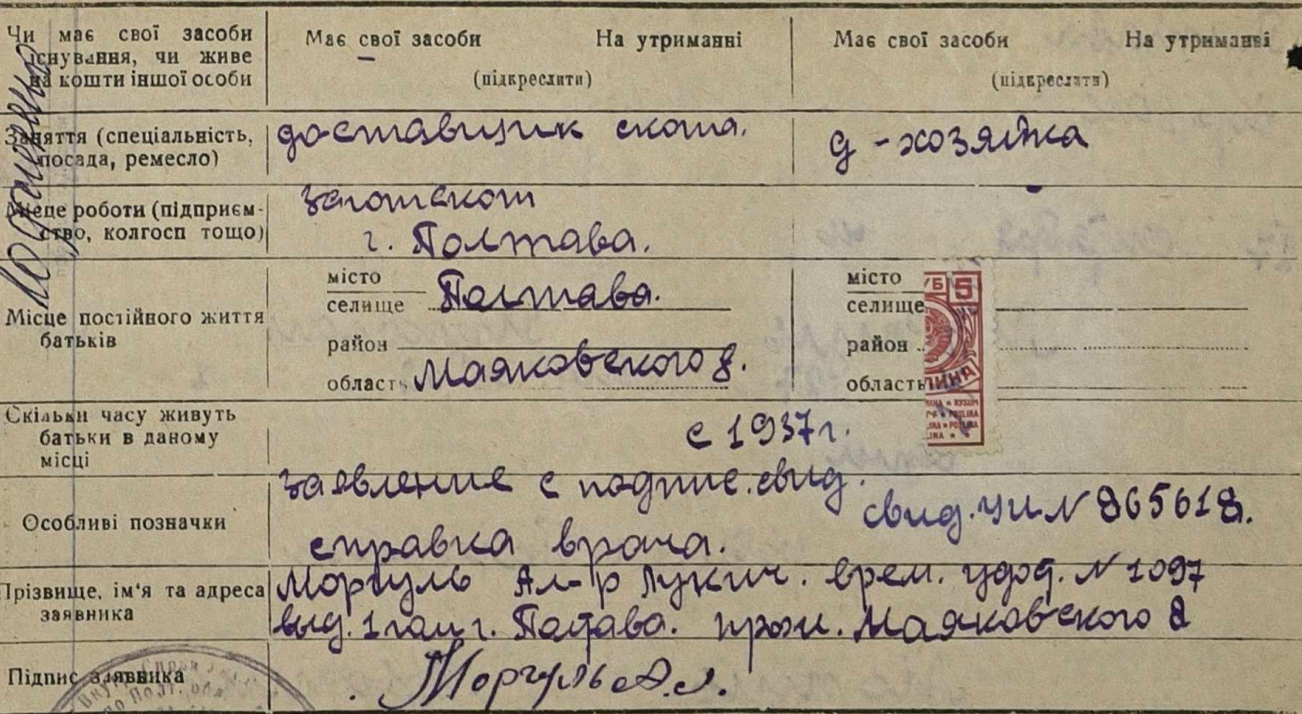 Чи має свої засоби
існування, чи живе
на кошти іншої особи
Має свої засоби На утриманні
(підкреслити)
Має свої засоби На утриманні
(підкреслити)
Заняття (спеціальність,
посада, ремесло)
доставщик скота.
д-хозяйка
Місце роботи (підприєм-
ство, колгосп тощо)
Заготскот
г. Полтава.
Місце постійного життя
батьків
місто
селище Полтава.
район
область Маяковского 8.
місто
селище
район
область
5
Скільки часу живуть
батьки в даному
місці
с 1937 г.
Особливі позначки
заявление с подпис. свид.
свид. ЧИ № 865618.
справка врача.
Прізвище, ім'я та адреса
заявника
Моргуль Ал-р Лукич. врем. удост. № 1097
выд. 1 г. Полтава. прож. Маяковского 8
Підпис заявника
Моргуль А.Л.